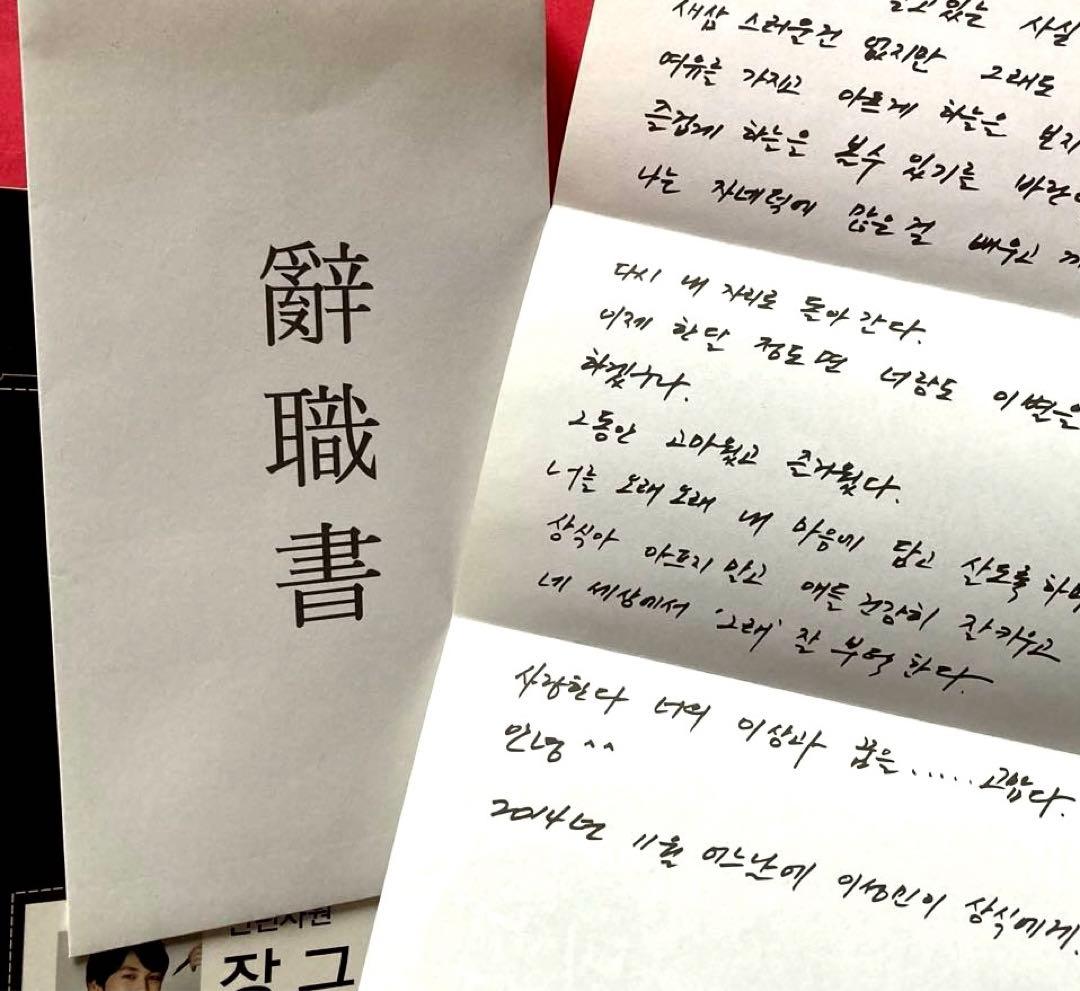 辭職書
알고 있는 사실
새삼스러운건 없지만 그래도
여유를 가지고 아프게 하늘은 보지
즐겁게 하늘은 볼수 있기를 바란
나는 자네덕에 많은걸 배우고
다시 내 자리로 돌아간다.
이제 한달 정도면 너랑도 이별을
하겠구나.
그동안 고마웠고 즐거웠다.
너를 오래오래 내 마음에 담고 살도록 하마
상식아 아프지 말고 애들 건강히 잘키우고
네 세상에서 '그래' 잘 부탁한다.
사랑한다 너의 이상과 꿈을...... 고맙다.
안녕 ^^
2014년 11월 어느날에 이성민이 상식에게.
장그